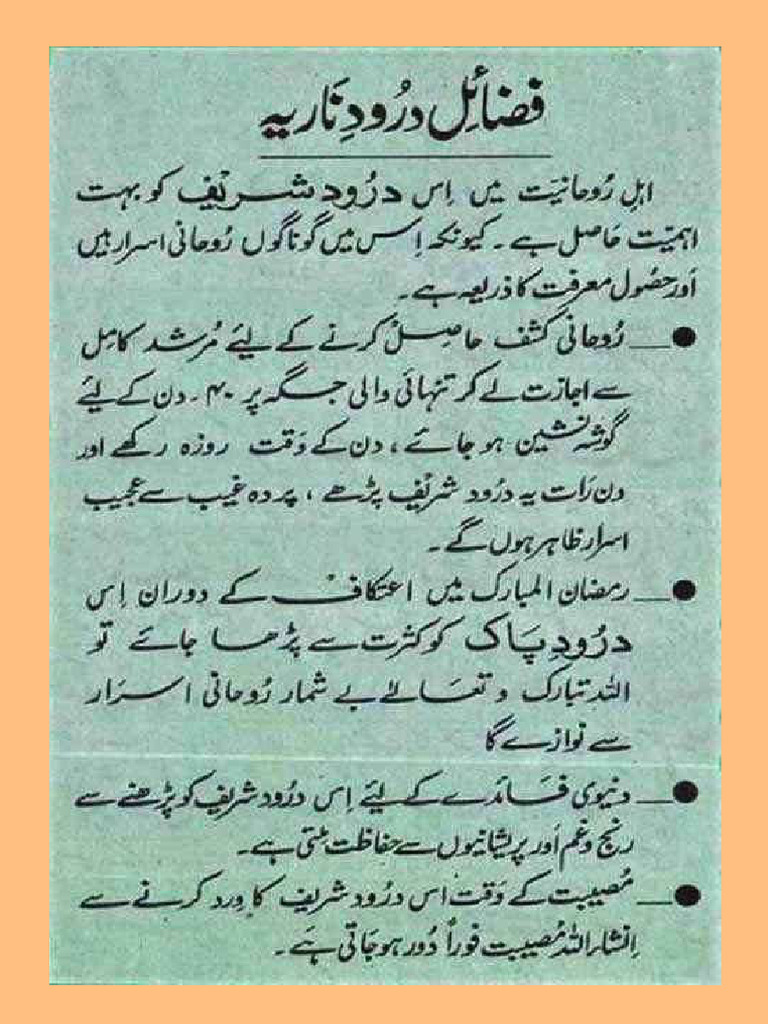 فضائلِ درُودِ ناریہ
اہلِ رُوحانیَت میں اِس درُود شریف کو بہت
اہمیّت حَاصل ہے۔ کیونکہ اِس میں گوناگوں رُوحانی اسرار ہیں
اَور حصُول معرفت کا ذریعہ ہے۔
● رُوحانی کشف حاصِل کرنے کے لیٔے مُرشد کامِل
سے اجازت لے کر تنہائی والی جگہ پر ۴۰۔ دن کے لیٔے
گوشہ نشین ہو جائے، دن کے وَقت روزہ رکھے اور
دن رَات یہ درُود شریف پڑھے، پردہ غیب سے عجیب
اسرار ظاہر ہوں گے۔
● رمضان المبارک میں اعتکاف کے دوران اِس
درُودِ پَاک کو کثرت سے پڑھا جائے تو
اللہ تبارک و تعَالےٰ بے شمار رُوحانی اسرَار
سے نوازے گا
● دنیوی فَائدے کے لیٔے اِس درُود شریف کو پڑھنے سے
رنج و غم اَور پریشانیوں سے حفاظت ملتی ہے۔
● مُصیبت کے وَقت اس درُود شریف کا وِرد کرنے سے
اِنشاء اللہ مُصیبت فوراً دُور ہو جَاتی ہَے۔